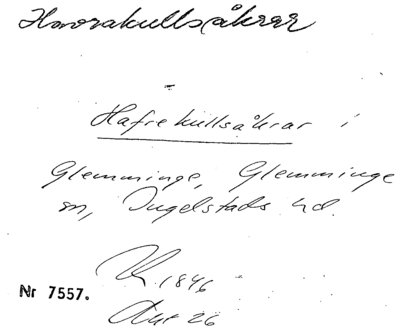 Havrakullsåkrar
Hafrekullsåkrar i
Glemminge, Glemminge
sn, Ingelstads hd.
1846
Nr 7557.
Akt 26